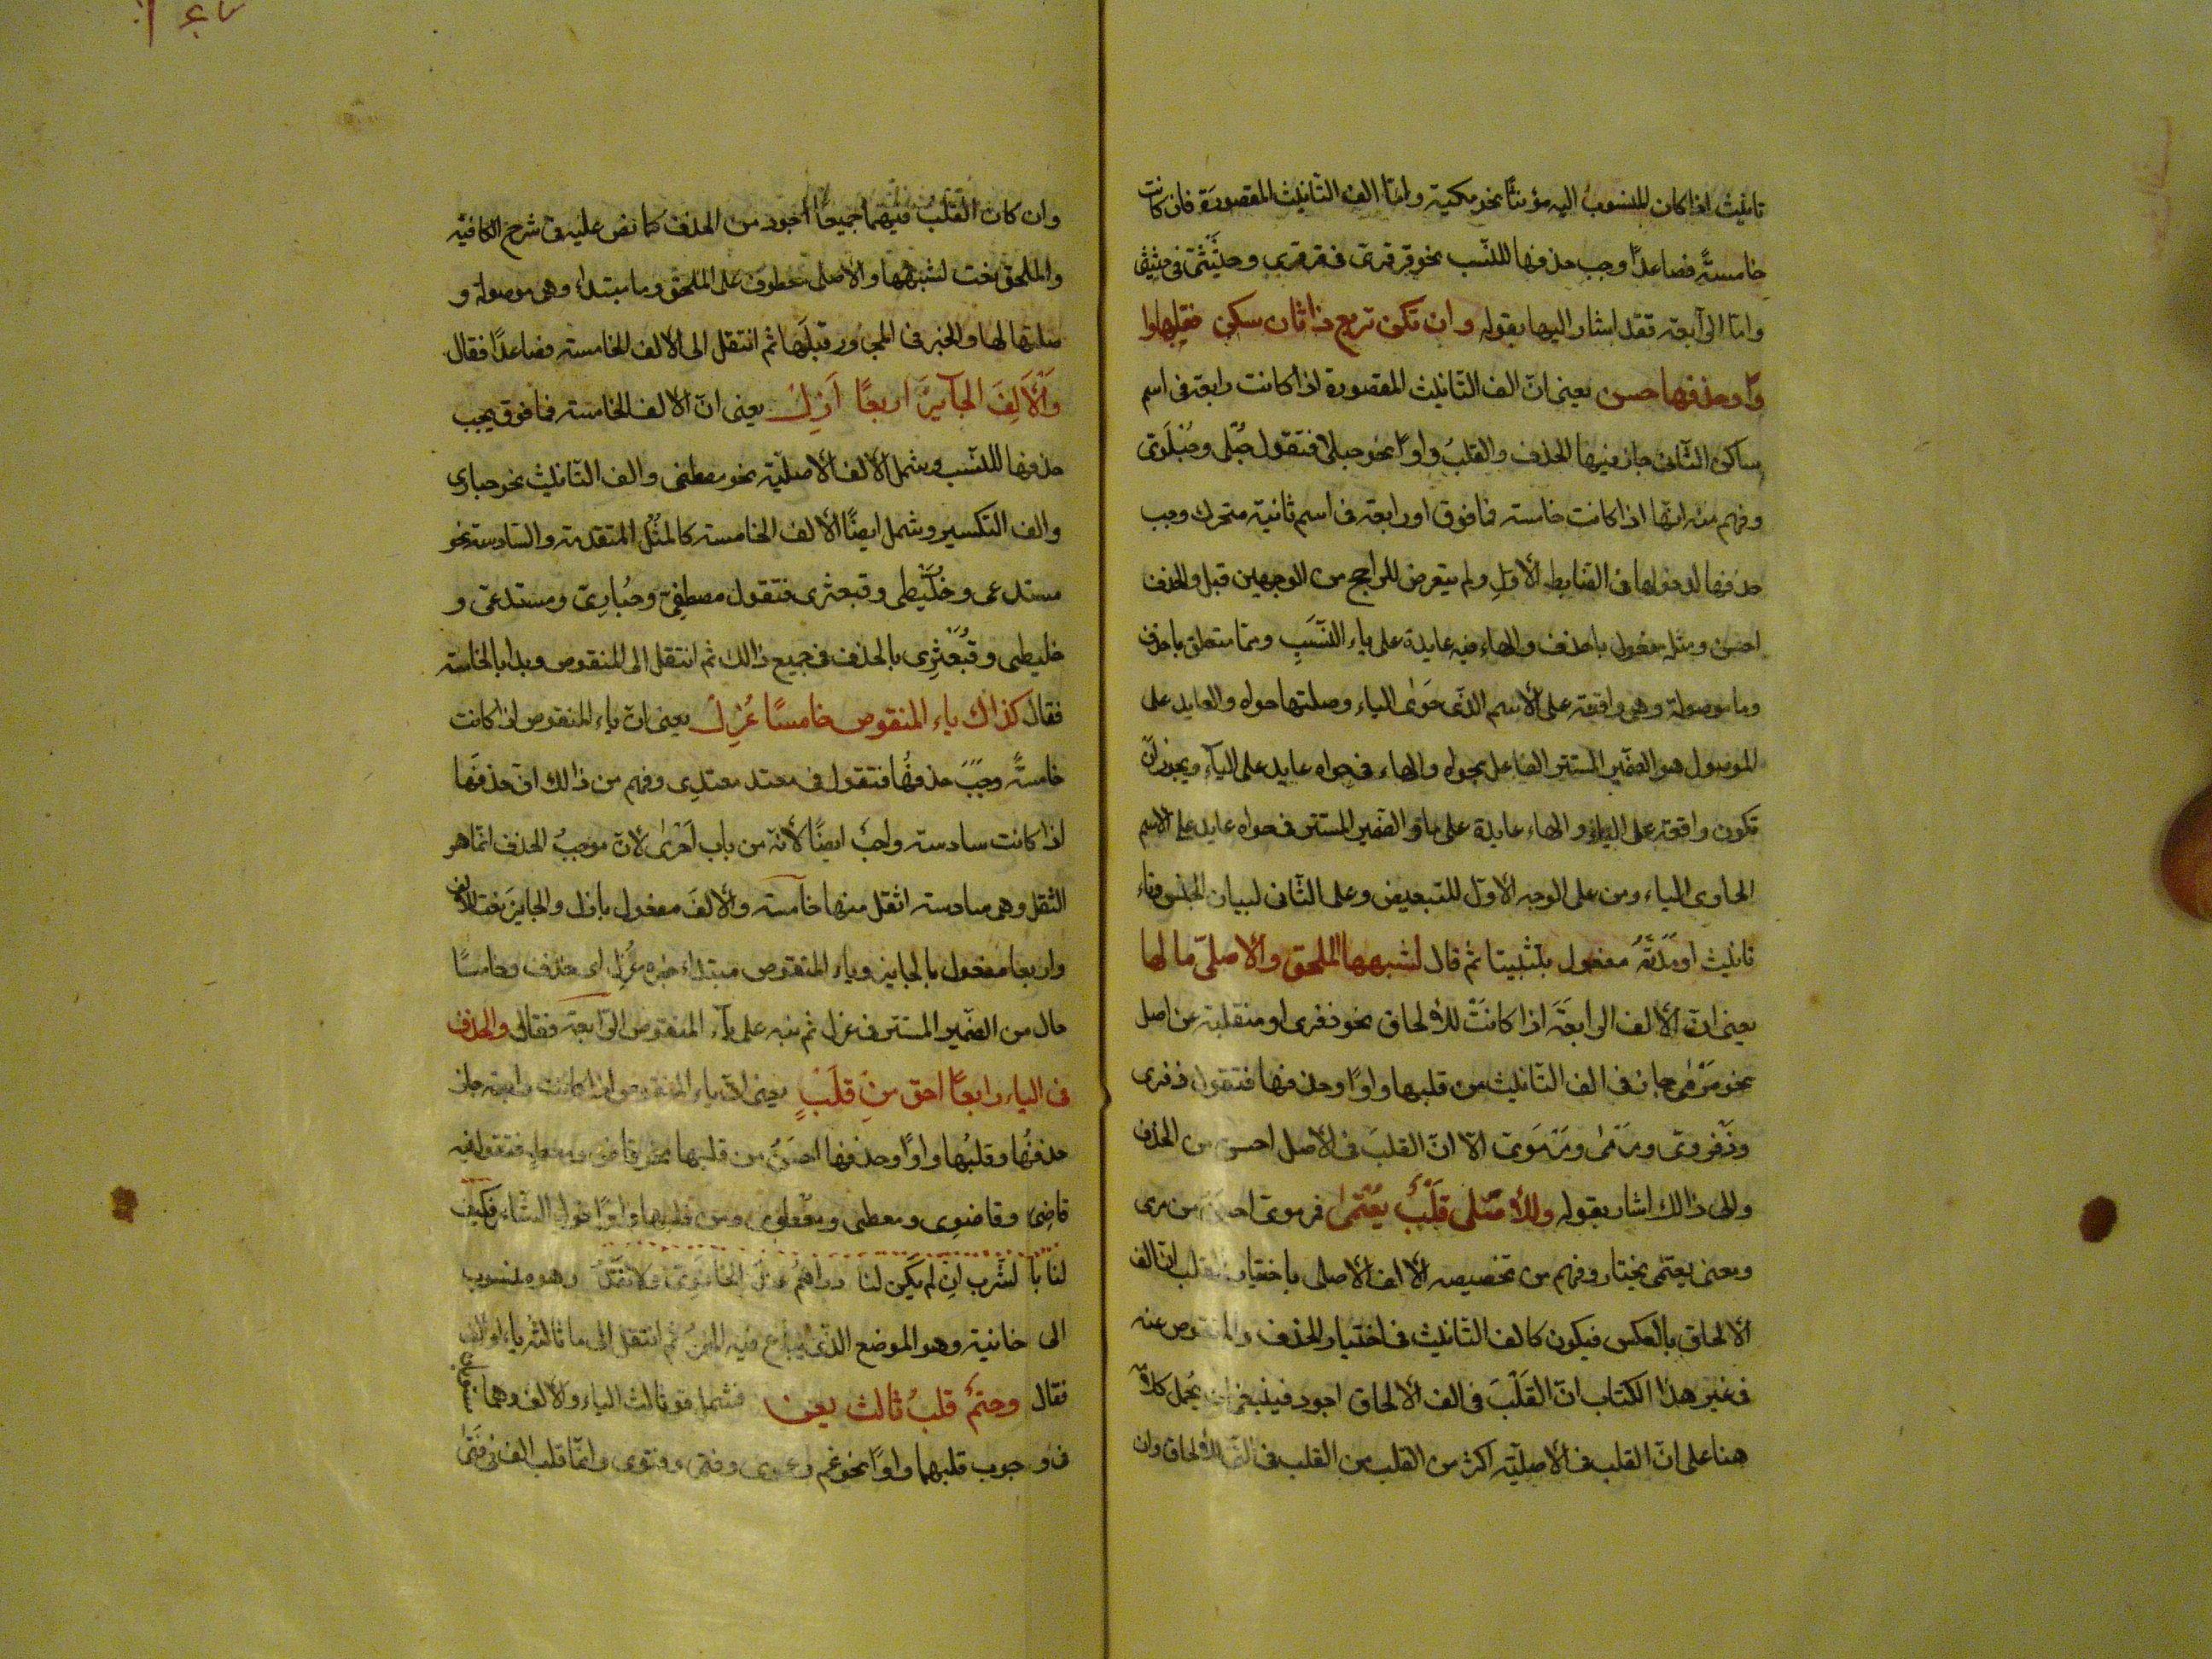 تانيث اذا كان المنسوبُ اليه مؤنثًا نحو مكية وامّا الف التّانيث المقصورة فان كانت
خامسةً فصاعدًا وجب حذفها للنّسب نحو قرقرىّ فى قرقرى وحثّيثىّ فى حثيثى
وامّا الرّابعة فقد اشار اليها بقوله وان تكن تربع ذا ثان سكن فقلبها وا
وًا وحذفها حسن يعنى انّ الف التّانيث المقصورة اذا كانت رابعة فى اسم
ساكن الثّانى جاز فيها الحذف والقلبُ واوًا نحو حبلى فتقول حُبْلى وحُبْلَوىّ
وفهم منه انّها اذا كانت خامسة فما فوق او رابعة فى اسم ثانية متحرك وجب
حذفها لدخولها فى الضّابط الاوّلِ ولم يتعرض للراجح من الوجهين قبل والحذف
احسن ومثله مفعول باحذف والهاء فيه عايدة على ياء النّسَبِ وممّا متعلق باحذف
وما موصولة وهى واقعة على الاسم الذّى حَوَى الياء وصلتها حواه والعايد على
الموصول هو الضّمير المستتر الفاعل بحواه والهاء فى حواه عايد على الياء ويجوز انْ
تكون واقعة على الياء والهاء عايدة على ما والضّمير المستتر فى حواه عايد على الاسم
الحاوى للياء ومن على الوجه الاوّل للتبعيض وعلى الثّانى لبيان الجنس وتاء
تانيث او مدّتهُ مفعول بلتثبيتا ثم قال لشبهها الملحق والاصلىّ ما لها
يعنى انّ الالف الرابعَة اذا كانَتْ للالحاق نحو ذفرى او منقلبة عن اصل
نحو مَرْمٰى جاز فى الف التّانيث من قلبها واوًا وحذفها فتقول ذفرى
وذَفْروىّ ومرْمىّ ومَرْمَوىّ الّا انّ القلبَ فى الاصل احسن من الحذف
والى ذالك اشار بقوله وللاصْلى قلْبٌ يُعْتمٰى فرموىّ احسن من مرمى
ومعنى يعتمى يختار وفهم من تخصيصه الالف الاصلى باختيار القلب انّ الف
الالحاق بالعكس فيكون كالف التّانيث فى اختيار الحذف والمنصوص عنه
فى غير هذا الكتاب انّ القَلْبَ فى الف الالحاق اجود فينبغى ان يُحمل كلامه
هنا على انّ القلب فى الاصليّة اكثر من القلب من القلب فى الف الالحاق وان
وان كان القلبُ فيهما جميعًا اجود من الحذف كما نصّ عليه فى شرح الكافية
والملحق نعت لشبهها والاصلى معطوف على الملحق وما مبتداء وهى موصولة و
صلتها لها والخبر فى المجرُور قبلَها ثم انتقل الى الالف الخامسة فصاعدًا فقال
وَالْاَلِفَ الجآيزَ اربعًا اَزِلْ يعنى انّ الالف الخامسة فما فوق يجب
حذفها للنّسب ويشمل الالف الاصليّة نحو مصطفى والف التّانيث نحو حبارى
والف التكسير وشمل ايضًا الالف الخامسة كالمثُل المتقدمة والسّادسة نحو
مستدعى وخُلَّيْطى وقبعثرى فتقول مصطفىّ وحُبارِىّ ومستدعىّ و
خليطى وقُبَعْثرِى بالحذف فى جميع ذالك ثم انتقل الى المنقوص وبدا بالخامسة
فقال كذاك ياء المنقوص خامسًا عُزِلْ يعنى انّ ياء المنقوص اذا كانت
خامسةً وجَبَ حذفُها فتقول فى معتد معتدِى وفهم من ذالك انّ حذفَها
اذا كانت سادسة واجبٌ ايضًا لانّه من باب اَحْرٰى لانّ موجبُ الحذف انّما هو
الثقل وهى سادسة اثقل منها خامسة والالفَ مفعول بازل والجايز نعت للالف
واربعا مفعول بالجايز وياء المنقوص مبتداء خبره عُزِل اى حذف وخامسًا
حال من الضّمير المستتر فى عزل ثم نبه على ياء المنقوص الرّابعة فقال والحذف
فى الياء رابعًا احق مِنْ قلَبٍ يعنى انّ ياء المنقوص اذا كانت رابعة جاز
حذفُها وقلبُها واوًا وحذفها احسَنُ من قلبها نحو قاض ومعط فتقول فيه
قاضِىّ وقاضوِى ومعطى ومعْطوى ومن قلبها واوًا قول الشّاعر فكيف
لنا بالشّرب اِنْ لم يَكن لنا دراهمُ عندَ الحانَوِىّ ولا نَقْدُ وهو منسوب
الى حانية وهو الموضع الذّى يباع فيه الخمرُ ثم انتقل الى ما ثالثه ياء او الف
فقال وحتمٌ قلبُ ثالث يعن فشمل قوله ثالث الياء والالف وهما يستويان
فى وجوب قلبهما واوًا نحو عَمٍ وعموى وفتى وفتوى وانّما قلب الف فى فَتَىٰ